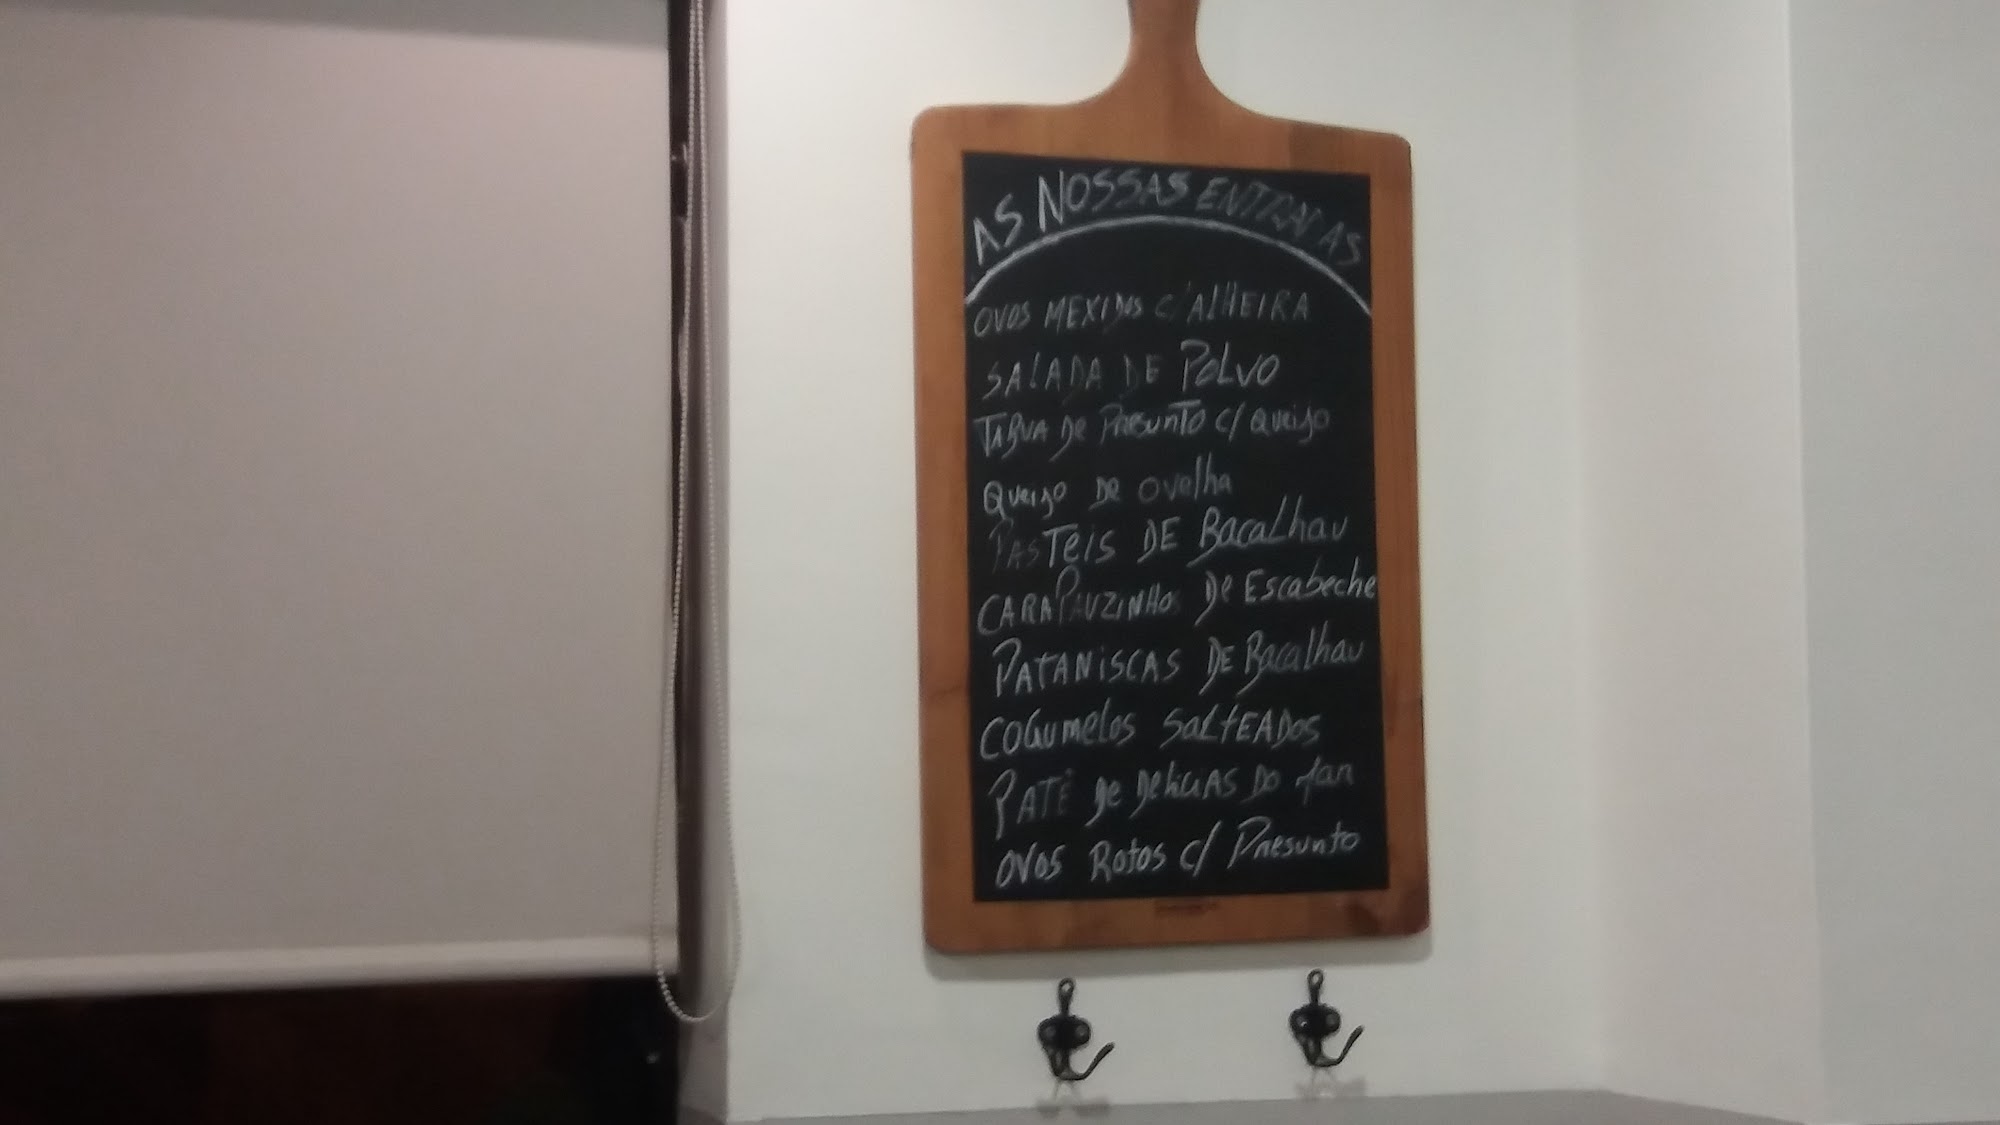 AS NOSSAS ENTRADAS
OVOS MEXIDOS C/ ALHEIRA
SALADA DE POLVO
TABUA De PRESUNTO C/ Queijo
Queijo De ovelha
PASTeis DE BacaLhau
CARAPAUZINHOS De Escabeche
PATANiSCAS DE Bacalhau
COGumelos SaLtEADos
PATÊ De DeliciAS Do Mar
OVOS Rotos c/ Presunto